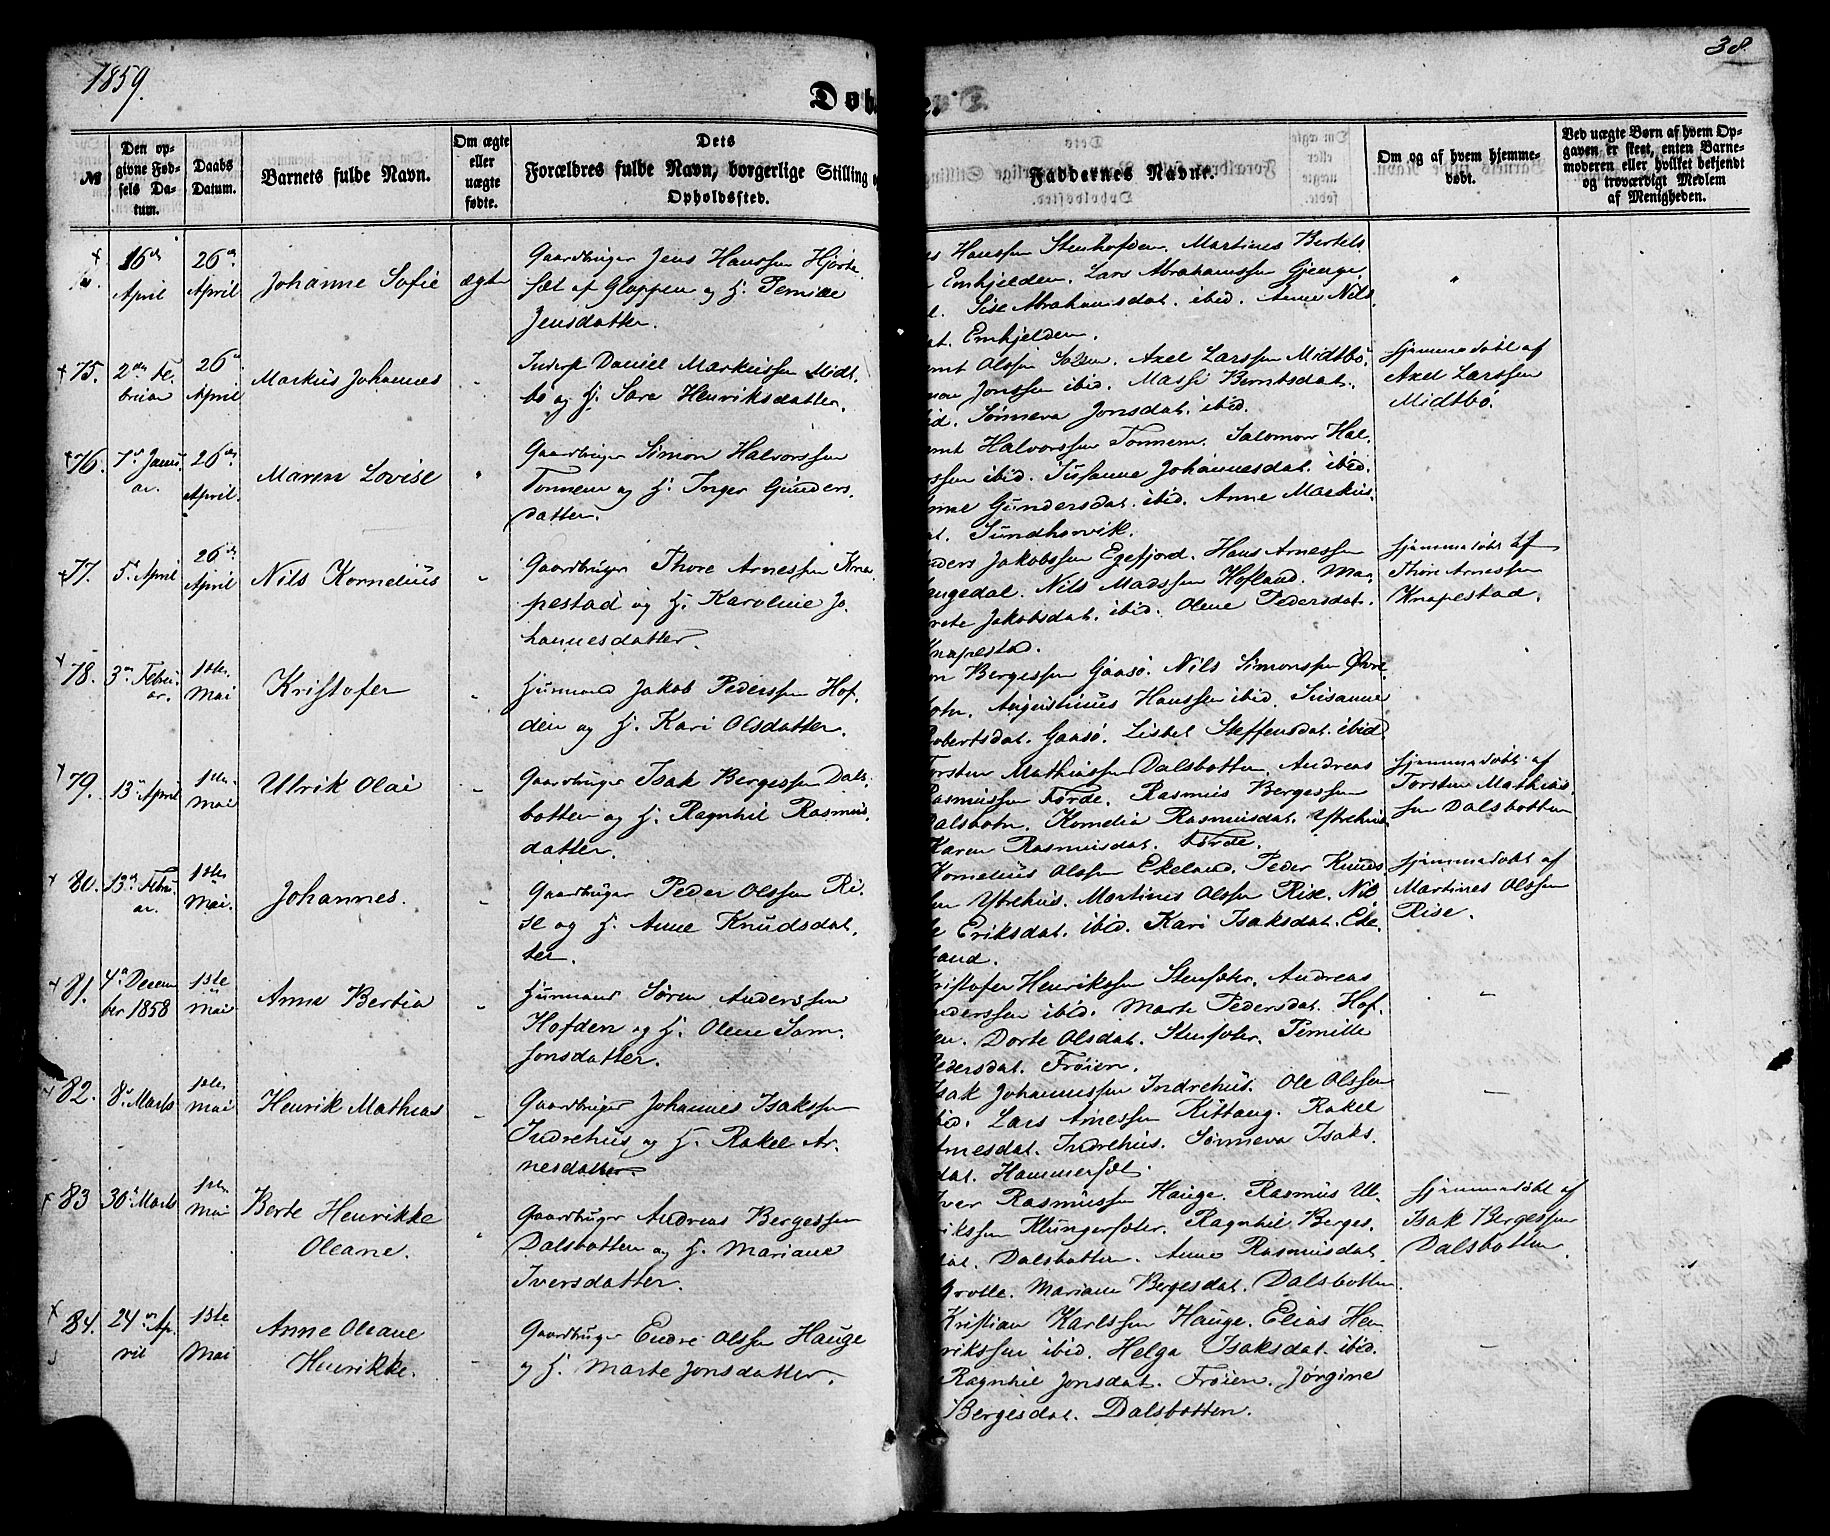 1859.
38
Døb
Den op-
givne Fød-
sels Da-
tum.
Daabs
Datum.
Barnets fulde Navn.
Om ægte
eller
uægte
fødte.
Dets
Forældres fulde Navn, borgerlige Stilling
Opholdssted.
Faddernes Navne.
Om og af hvem hjemme-
døbt.
Ved uægte Børn af hvem Op-
gaven er skeet, enten Barne-
moderen eller hvilket bekjendt
og troværdigt Medlem
af Menigheden.
16de April
26de April
Johanne Sofie
ægte
Gaardbruger Jens Hanssen Hjorte-
sæt af Gloppen og H. Pernille
Jensdatter.
Hanssen Stenhofden. Martines Bertels
Emhjelden. Lars Abrahamssen Gjenge
Sise Abrahamsdat. ibid. Anne Nils
at. Emhjelden.
75.
2den Fe-
bruar
26de April
Markus Johannes
Inderst Daniel Markussen Midt-
bø og H. Sara Henriksdatter.
Olssen Solsen. Axel Larssen Midtbø.
Jonssen ibid. Massi Berntsdat.
Sønneva Jonsdat. ibid.
Hjemmedøbt af
Axel Larssen
Midtbø.
76.
1de Janu-
ar.
26de April.
Maren Lovise
Gaardbruger Simon Halvorssen
Tonnem og H. Inger Gunders-
datter.
Halvorssen Tonnem. Salomon Hal-
ssen ibid. Susanne Johannesdat. ibid.
Gundersdat. ibid. Anne Markus-
at. Sundhorvik.
77.
5te April
26de April
Nils Kornelius
Gaardbruger Thore Arnessen Kna-
pestad og H. Karoline Jo-
hannesdatter.
nders Jakobssen Egefjord. Hans Arnessen
Nils Madssen Hofland. Mar-
rete Jakobsdat. ibid. Olene Pedersdat.
Knapestad.
Hjemmedøbt af
Thore Arnessen
Knapestad.
78.
3die Febru-
ar.
1ste Mai
Kristofer
Huusmand Jakob Pederssen Hof-
den og H. Kari Olsdatter.
Bergessen Gaasø. Nils Simonssen Øvre
botn. Augustinus Hanssen ibid. Susanne
Robertsdat. Gaasø. Lisbet Steffensdat. ibid
79.
13de April
1ste Mai
Ulrik Olai
Gaardbruger Isak Bergessen Dals-
botten og H. Ragnhil Rasmus-
datter.
Torsten Mathiassen Dalsbotten. Andreas
Rasmussen Førde. Rasmus Bergessen
Dalsbotn. Kornelia Rasmusdat. Ytrehus
Karen Rasmusdat. Førde.
Hjemmedøbt af
Torsten Mathias-
sen Dalsbotten
80.
13de Febru-
ar.
1ste Mai.
Johannes.
Gaardbruger Peder Olssen Ri-
se og H. Anne Knudsdat-
ter.
Kornelius Olssen Ekeland. Peder Knuds
sen Ytrehus. Martines Olssen Rise. Nil
Eriksdat. ibid. Kari Isaksdat. Eke-
land.
Hjemmedøbt af
Martines Olssen
Rise.
81.
4de Decem-
ber 1858
1ste Mai
Anne Bertia
Huusmand Søren Anderssen
Hofden og H. Olene Sam-
sonsdatter.
Kristofer Henrikssen Stensæter. Andreas
nderssen ibid. Marte Pedersdat. Hof-
en. Dorte Olsdat. Stensæter. Pernille
Pedersdat. Frøien.
82.
8de Marts
1ste Mai
Henrik Mathias
Gaardbruger Johannes Isakssen
Indrehus og H. Rakel Ar-
nesdatter.
Isak Johannessen Indrehus. Ole Olssen
ibid. Lars Arnessen Kittang. Rakel
Arnesdat. Indrehus. Sønneva Isaks-
dat. Hammersæt.
83
30de Marts
1ste Mai
Berte Henrikke
Oleane.
Gaardbruger Andreas Bergessen
Dalsbotten og H. Mariane
Iversdatter.
Iver Rasmussen Hauge. Rasmus Ul-
rikssen Klungersæter. Ragnhil Berges-
dat. Dalsbotten. Anne Rasmusdat.
Grotle. Mariane Bergesdat. Dalsbotten
Hjemmedøbt af
Isak Bergessen
Dalsbotten.
84.
24de Ap-
ril
1ste Mai
Anne Oleane
Henrikke.
Gaardbruger Endre Olssen Hauge
og H. Marte Jonsdatter.
Kristian Karlssen Hauge. Elias Hen-
rikssen ibid. Helga Isaksdat. ibid.
Ragnhil Jonsdat. Frøien. Jørgine
Bergesdat. Dalsbotten.